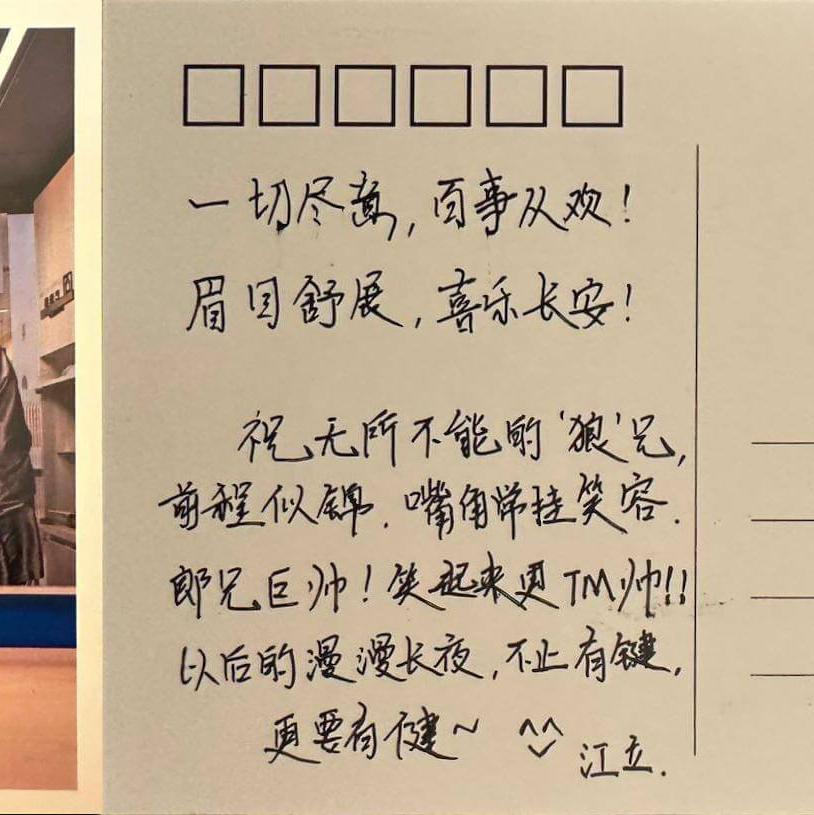 一切尽意,百事从欢!
眉目舒展,喜乐长安!
祝无所不能的'狼'兄,
前程似锦.嘴角常挂笑容.
郎兄巨帅!笑起来更TM帅!!
以后的漫漫长夜,不止有键,
更要有健~ ^^ 江立.